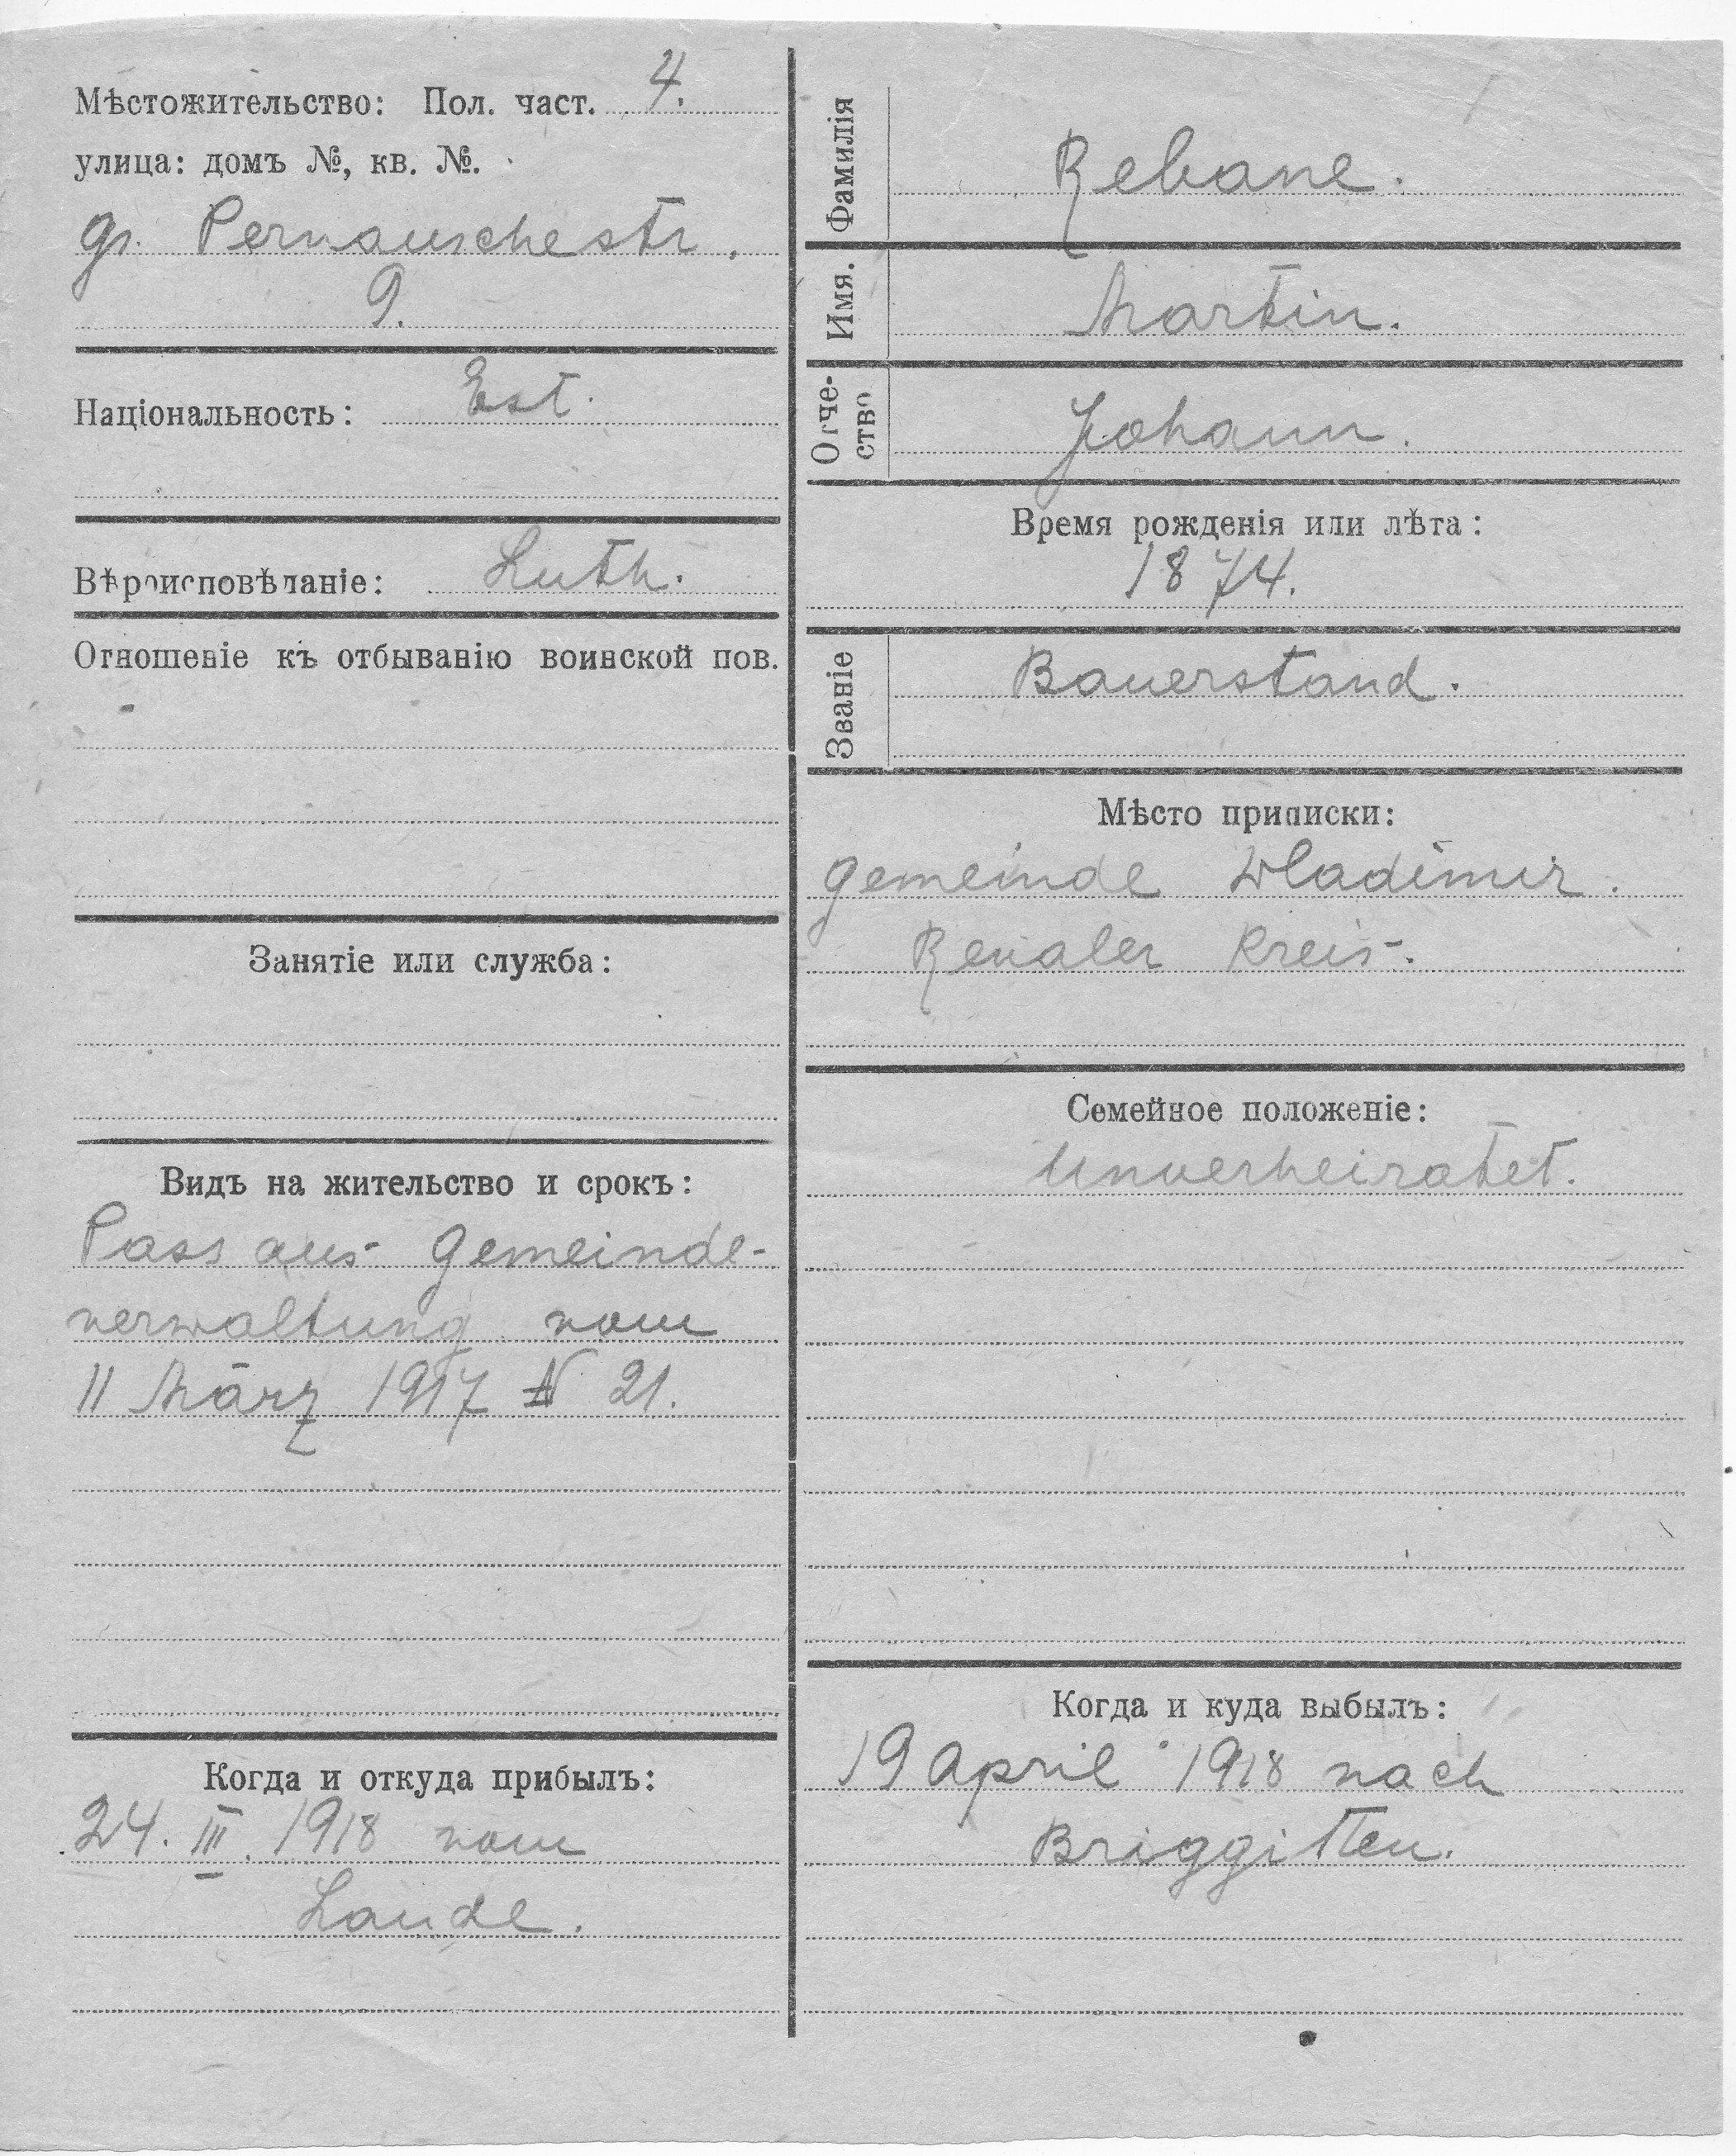 Мѣстожительство: Пол. част. 4.
улица: домъ №, кв. №.
gr. Pernauschestr.
9.
Національность: Est.
Вѣроисповѣданіе: Luth.
Отношеніе къ отбыванію воинской пов.
-
Занятіе или служба:
Видъ на жительство и срокъ:
Pass aus Gemeinde-
verwaltung vom
11 März 1917 N 21.
Когда и откуда прибылъ:
24. III. 1918 vom
Lande.
Фамилія Rebane.
Имя. Martin.
Отче-
ство Johann.
Время рожденія или лѣта:
1874.
Званіе Bauerstand.
Мѣсто приписки:
Gemeinde Wladimir.
Revaler Kreis.
Семейное положеніе:
Unverheiratet.
Когда и куда выбылъ:
19 April 1918 nach
Briggitten.